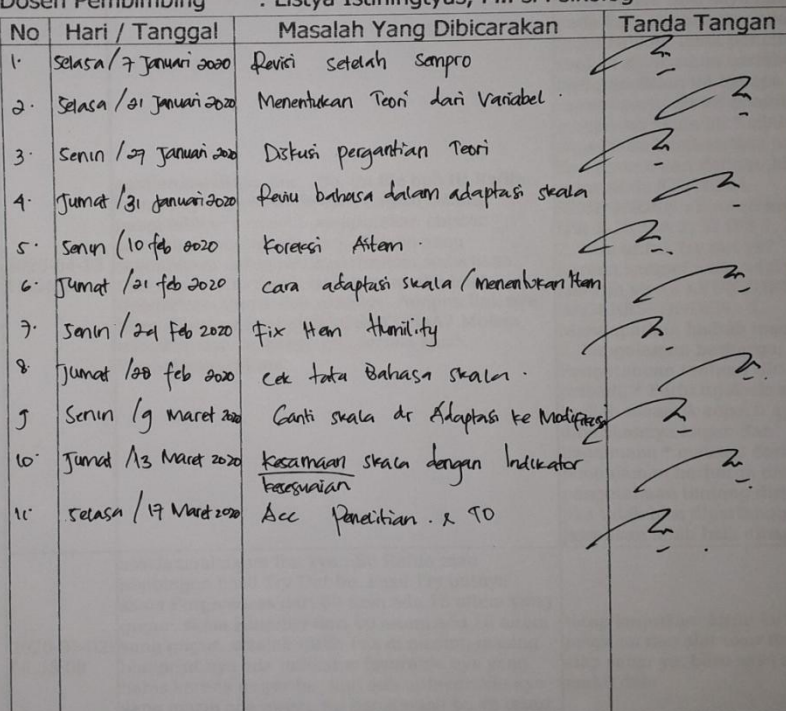 Dosen Pembimbing : Listya Istiningtyas, M.Psi Psikolog
No Hari / Tanggal Masalah Yang Dibicarakan Tanda Tangan
1. Selasa/7 Januari 2020 Revisi setelah sempro
2. Selasa/21 Januari 2020 Menentukan Teori dari Variabel.
3. Senin/27 Januari 2020 Diskusi pergantian Teori
4. Jumat/31 Januari 2020 Reviu bahasa dalam adaptasi skala
5. Senin/10 feb 2020 Koreksi Aitem.
6. Jumat/21 feb 2020 Cara adaptasi skala/menentukan Item
7. Senin/24 Feb 2020 Fix Item Humility
8. Jumat/28 feb 2020 Cek tata Bahasa skala.
9 Senin/9 Maret 2020 Ganti skala dr Adaptasi ke Modifikasi
10. Jumat/13 Maret 2020 Kesamaan skala dengan Indikator
kesesuaian
11 Selasa/17 Maret 2020 Acc Penelitian. & TO